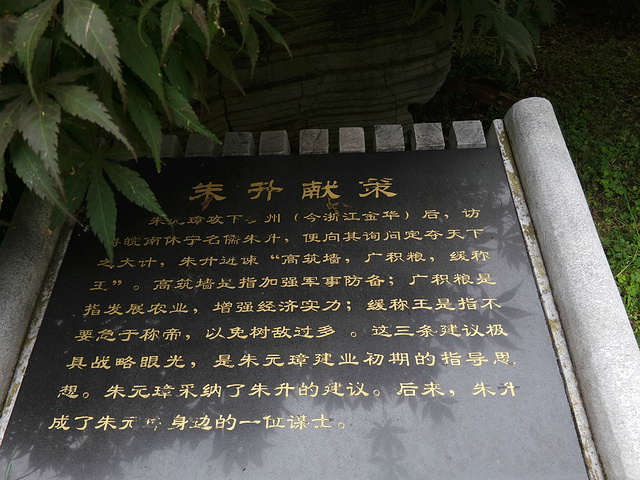 朱升献策
朱元璋攻下婺州（今浙江金华）后，访
得皖南休宁名儒朱升，便向其询问定夺天下
之大计，朱升进谏“高筑墙，广积粮，缓称
王”。高筑墙是指加强军事防备；广积粮是
指发展农业，增强经济实力；缓称王是指不
要急于称帝，以免树敌过多。这三条建议极
具战略眼光，是朱元璋建业初期的指导思
想。朱元璋采纳了朱升的建议。后来，朱升
成了朱元璋身边的一位谋士。